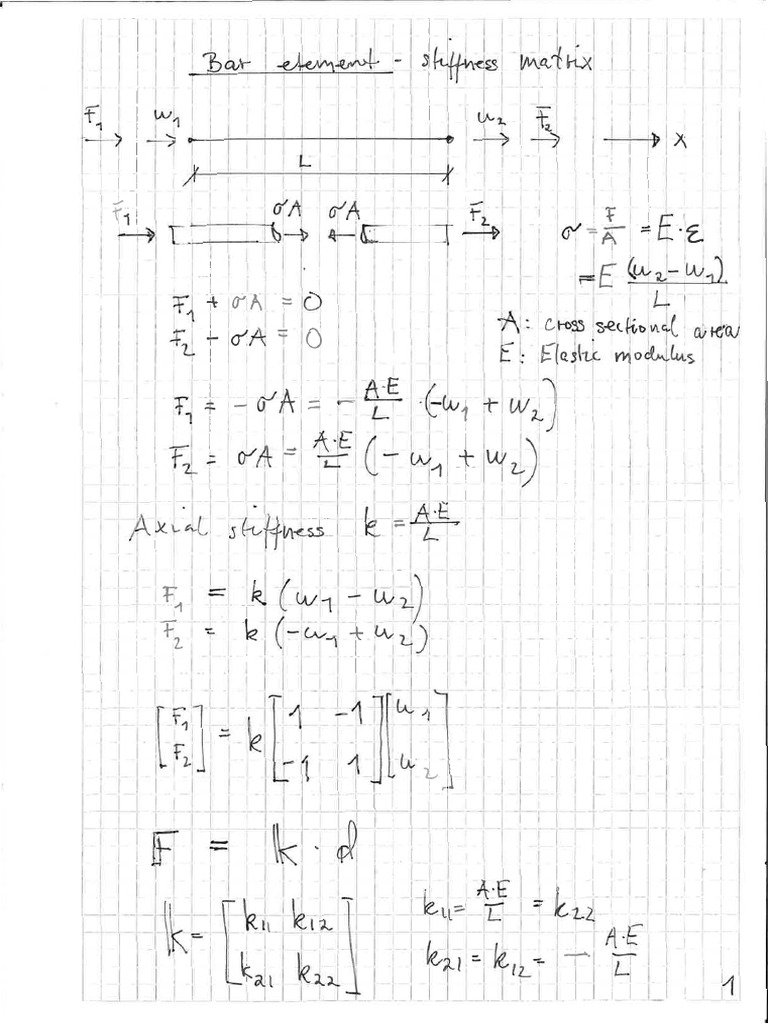 Bar element - stiffness matrix
F₁ u₁ u₂ F₂ x
L
F₁ σA σA F₂ σ = F/A = E·ε
= E (u₂-u₁)/L
F₁ + σA = 0
A: cross sectional area
F₂ - σA = 0
E: Elastic modulus
F₁ = - σA = - A·E/L · (-u₁ + u₂)
F₂ = σA = A·E/L (-u₁ + u₂)
Axial stiffness k = A·E/L
F₁ = k (u₁ - u₂)
F₂ = k (-u₁ + u₂)
[F₁ F₂] = k [1 -1 -1 1] [u₁ u₂]
𝔽 = 𝕜 · d
𝕜 = [k₁₁ k₁₂ k₂₁ k₂₂]
k₁₁ = A·E/L = k₂₂
k₂₁ = k₁₂ = - A·E/L
1